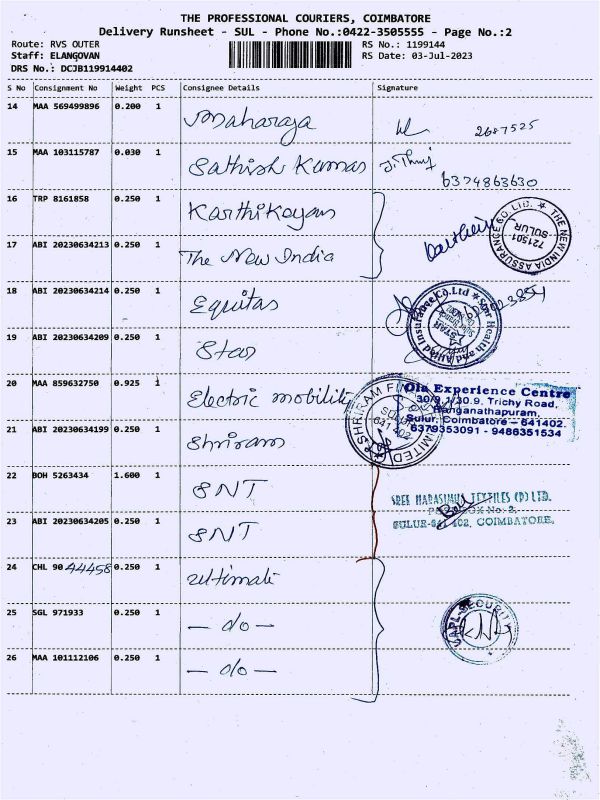 THE PROFESSIONAL COURIERS, COIMBATORE
Delivery Runsheet - SUL - Phone No.:0422-3505555 - Page No.:2
Route: RVS OUTER RS No.: 1199144
Staff: ELANGOVAN RS Date: 03-Jul-2023
DRS No.: DCJB119914402
S No Consignment No Weight PCS Consignee Details Signature
14 MAA 569499896 0.200 1 Maharaja 2687525
15 MAA 103115787 0.030 1 Sathish Kumar 6374863630
16 TRP 8161858 0.250 1 Karthikeyan
THE NEW INDIA ASSURANCE CO. LTD. * 721501 SULUR
17 ABI 20230634213 0.250 1 The New India
18 ABI 20230634214 0.250 1 Equitas
Star Health and Allied Insurance Co.Ltd * STAR
19 ABI 20230634209 0.250 1 Star
20 MAA 859632750 0.925 1 Electric mobility
Ola Experience Centre
30/9.1/30.9, Trichy Road,
Ranganathapuram,
Sulur, Coimbatore - 641402.
6379353091 - 9486351534
21 ABI 20230634199 0.250 1 Shriram
SHRIRAM LIMITED SULUR 641 402
22 BOH 5263434 1.600 1 SNT
SREE NARASIMHA TEXTILES (P) LTD.
BOX No: 2,
SULUR-641 402, COIMBATORE.
23 ABI 20230634205 0.250 1 SNT
24 CHL 9044458 0.250 1 Ultimate
25 SGL 971933 0.250 1 — do —
SECURITY
26 MAA 101112106 0.250 1 — do —